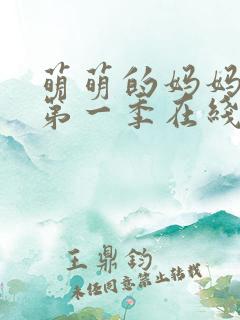 萌萌的妈妈
第一季在线
王鼎钧
未经同意禁止转载